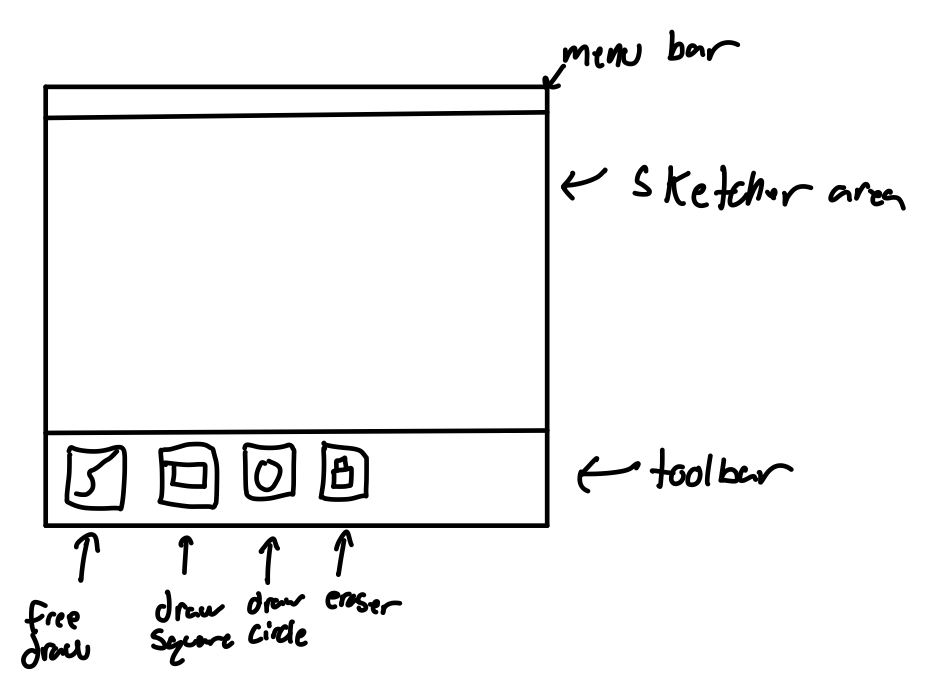 menu bar
sketcher area
toolbar
free
draw
draw
square
draw
circle
eraser